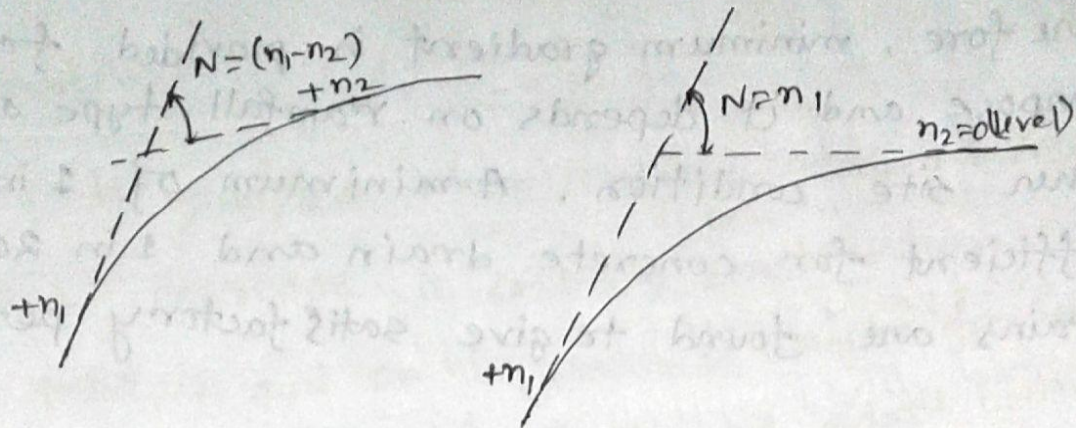 N=(n₁-n₂)
+n₂
+n₁
N=n₁
n₂=0(level)
+n₁